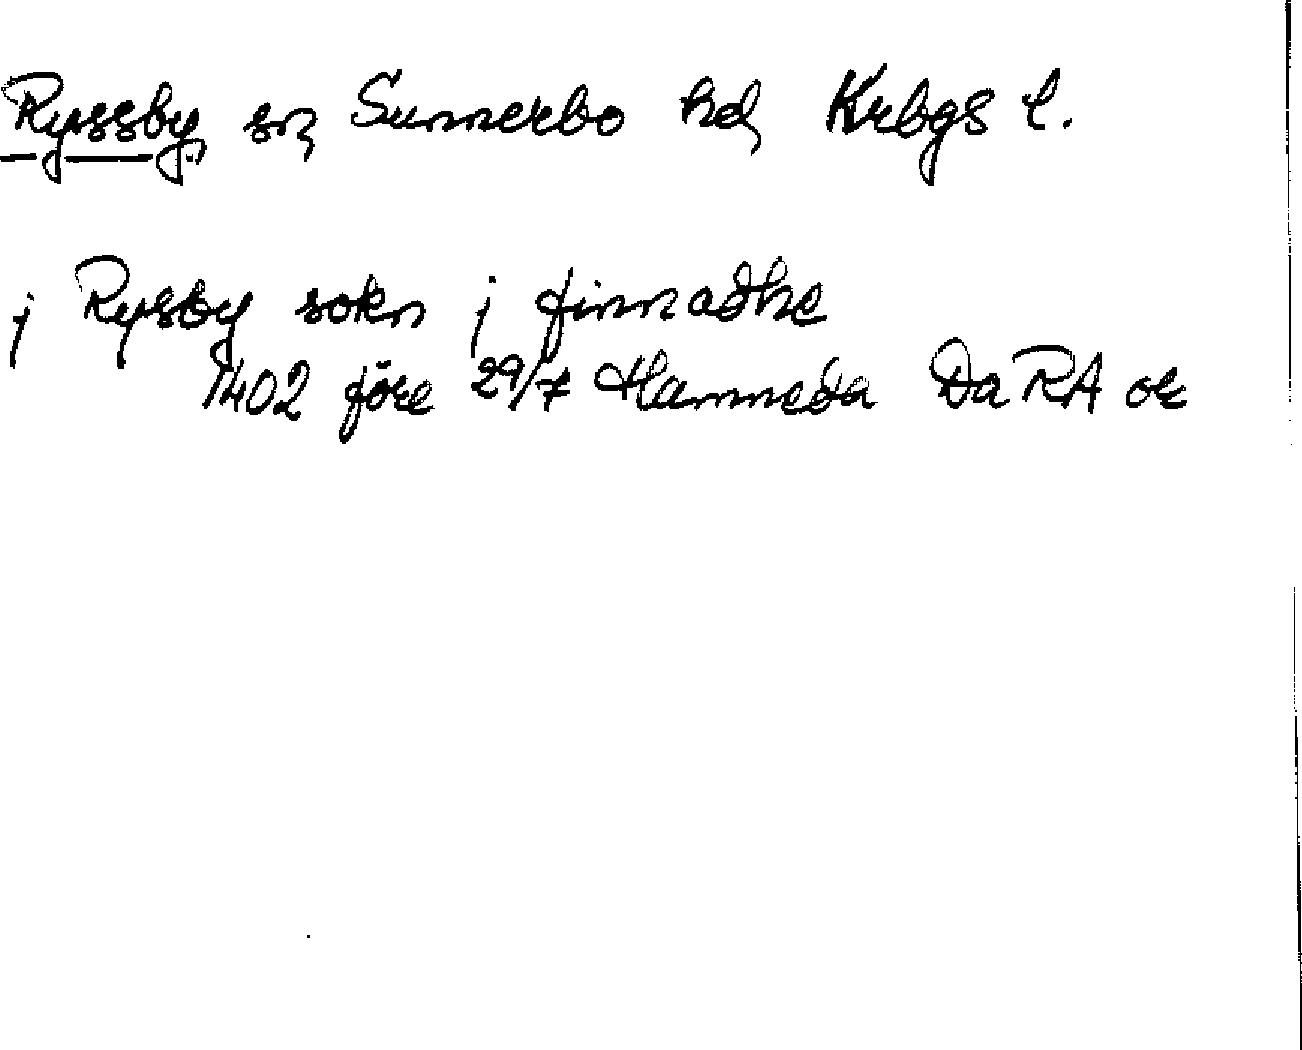 Ryssby sn, Sunnerbo hd, Krbgs l.
j Rysby sokn j finnadhe
1402 före 29/7 Hamneda DaRA or